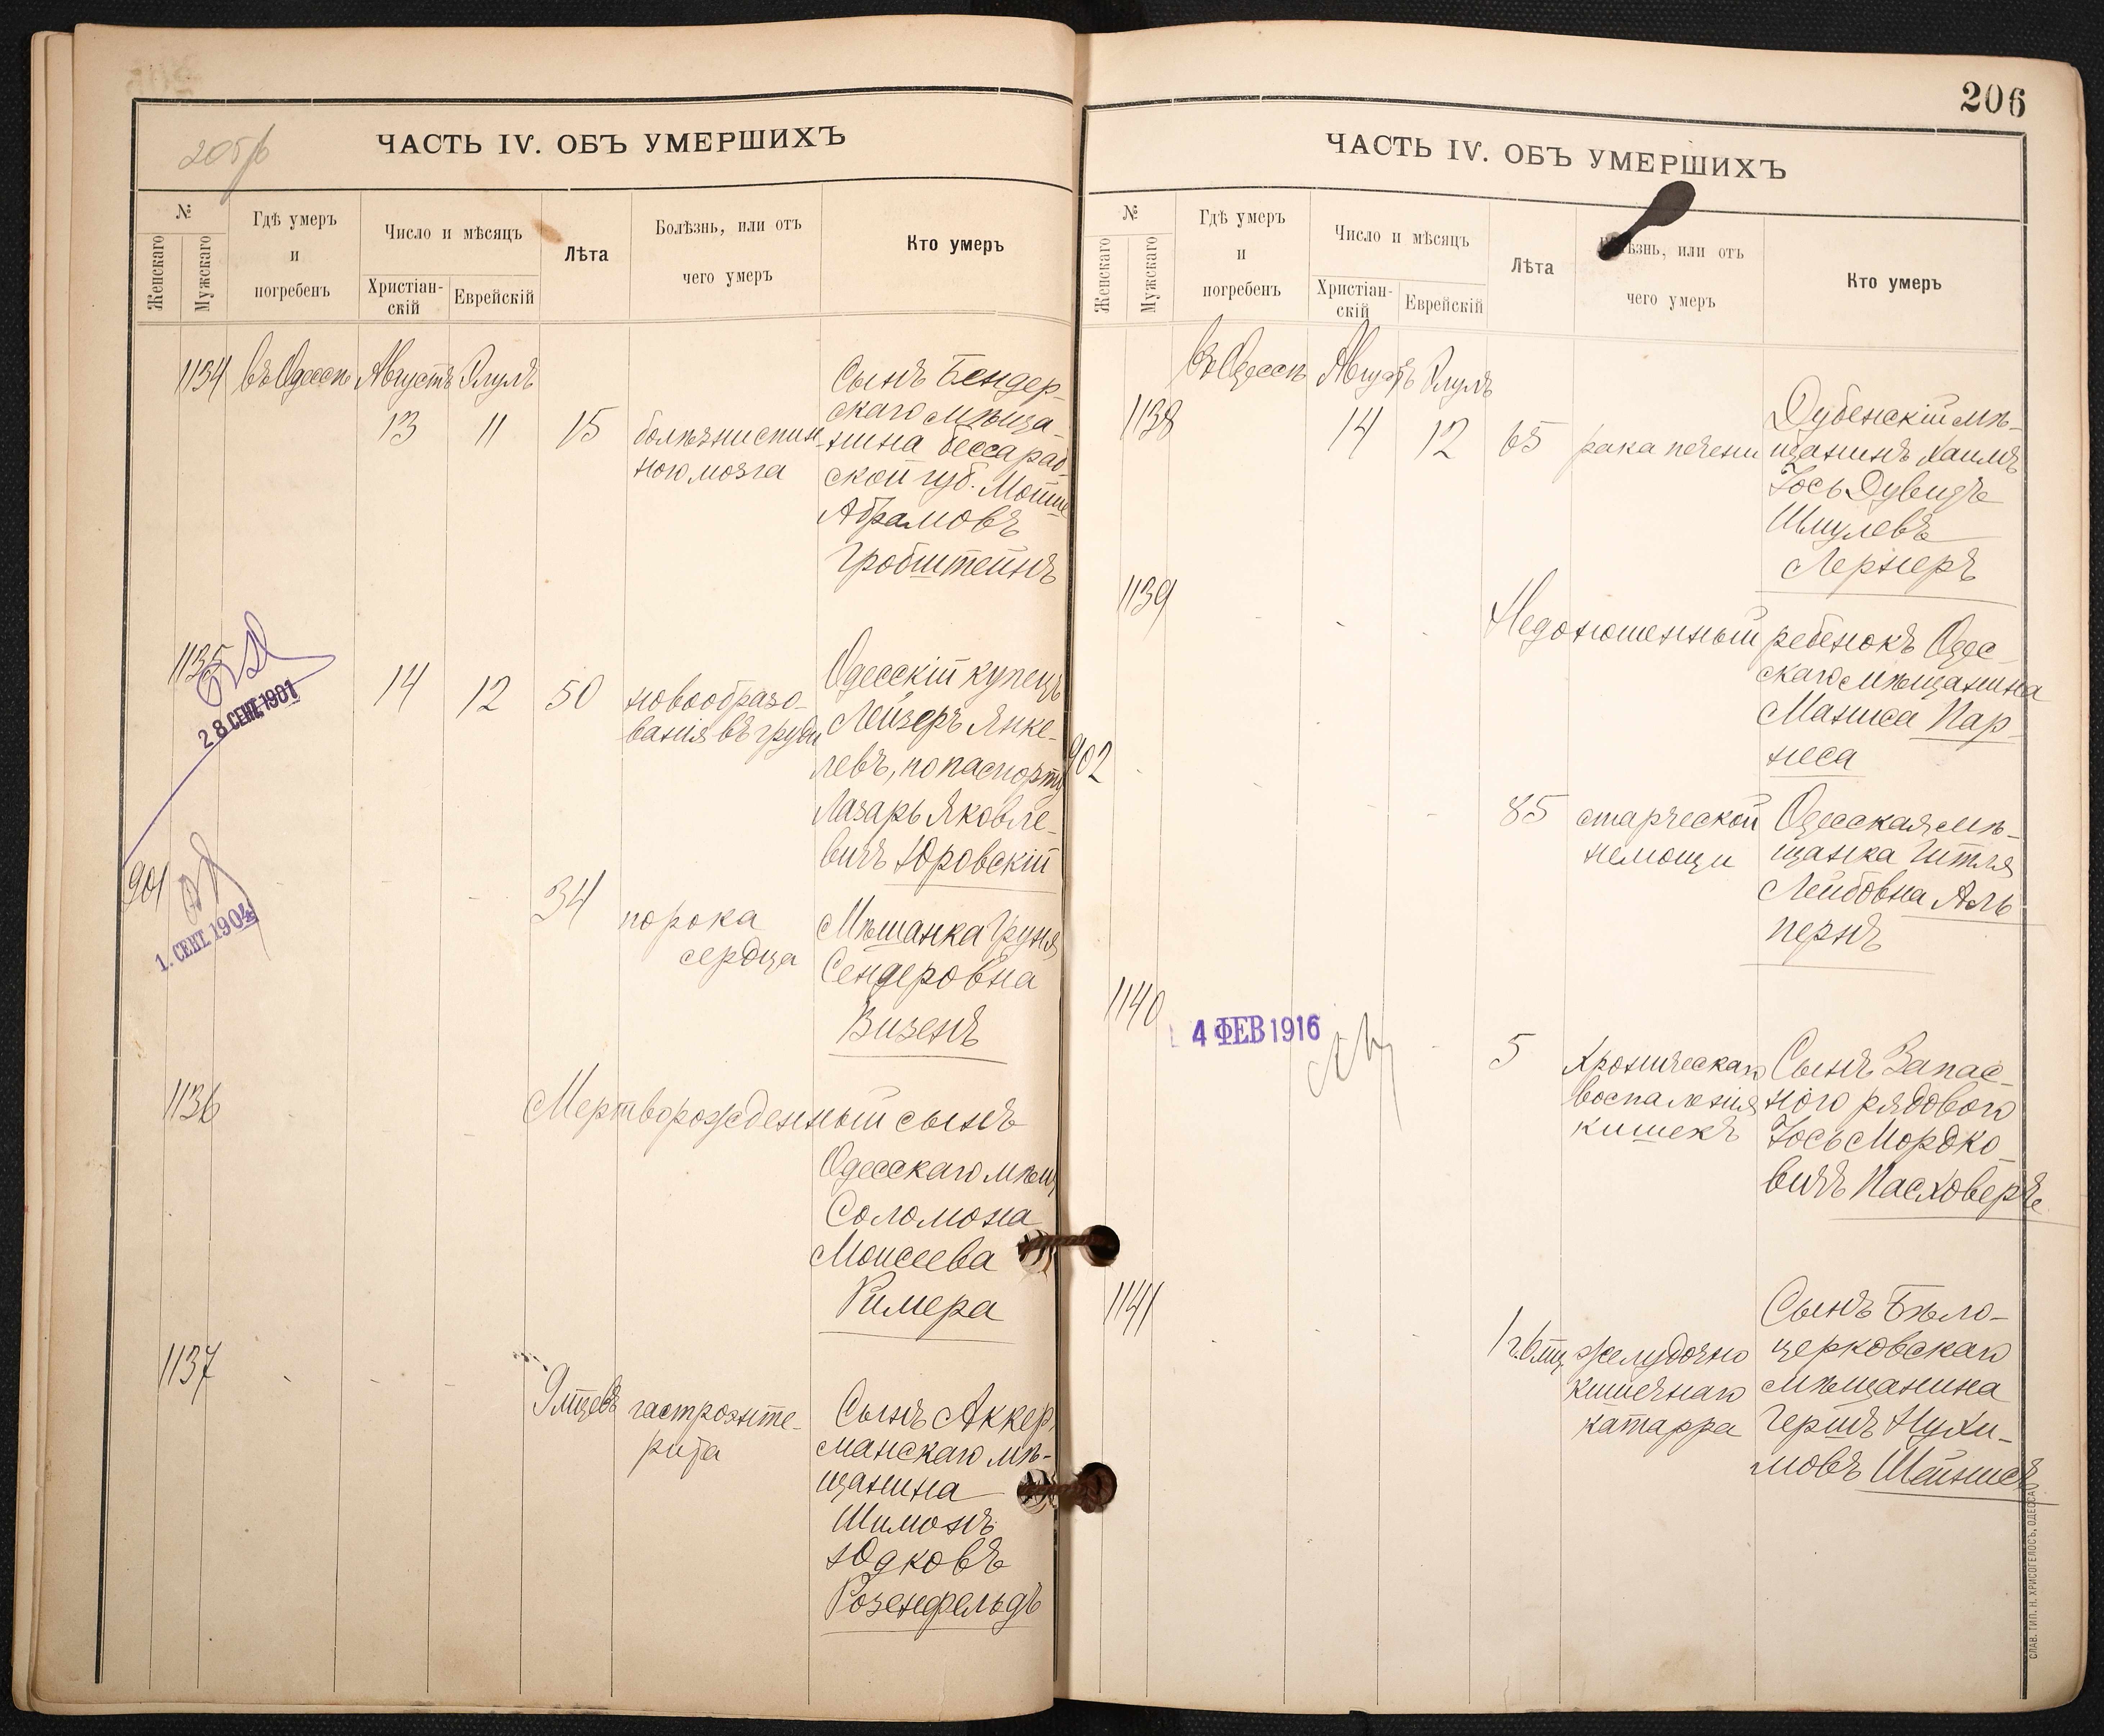 205/б
ЧАСТЬ IV. ОБЪ УМЕРШИХЪ
№
Женскаго
Мужскаго
Гдѣ умеръ
и
погребенъ
Число и мѣсяцъ
Христіан-
скій
Еврейскій
Лѣта
Болѣзнь, или отъ
чего умеръ
Кто умеръ
1134 въ Одессѣ Августъ Элулъ
13 11 15
болѣзни спин-
ного мозга
Сынъ Бендер-
скаго мѣща-
нина бессараб-
ской губ. Мойше
Абрамовъ
Гробштейнъ
1135
28 СЕНТ. 1901
14 12 50
новообразо-
ванія въ груди
Одесскій купецъ
Лейзеръ Янке-
левъ, по паспорту
Лазарь Яковле-
вичъ Юровскій
901
1. СЕНТ. 1904
34
порока
сердца
Мѣщанка Груня
Сендеровна
Визенъ
1136
Мертворожденный сынъ
Одесскаго мѣщ.
Соломона
Моисеева
Римера
1137
9 мцевъ
гастроэнте-
рита
Сынъ Аккер-
манскаго мѣ-
щанина
Шимонъ
Юдковъ
Розенфельдъ
206
ЧАСТЬ IV. ОБЪ УМЕРШИХЪ
№
Женскаго
Мужскаго
Гдѣ умеръ
и
погребенъ
Число и мѣсяцъ
Христіан-
скій
Еврейскій
Лѣта
Болѣзнь, или отъ
чего умеръ
Кто умеръ
въ Одессѣ Августъ Элулъ
1138
14 12 65
рака печени
Дубенскій мѣ-
щанинъ Хаимъ
Іось Дувидъ
Шмулевъ
Лернеръ
1139
Недоношенный ребенокъ Одес-
скаго мѣщанина
Маниса Пар-
неса
902
85
старческой
немощи
Одесская мѣ-
щанка Гитля
Лейбовна Аль-
пернъ
1140
4 ФЕВ 1916
5
Хроническаго
воспаленія
кишекъ
Сынъ Запас-
ного рядового
Іось Мордко-
вичъ Пасховеръ
1141
1 г. 6 мц.
желудочно
кишечнаго
катарра
Сынъ Бѣло-
церковскаго
мѣщанина
Гершъ Нухи-
мовъ Шейнисъ
СЛАВ. ТИП. Н. ХРИСОГЕЛОСЪ, ОДЕССА